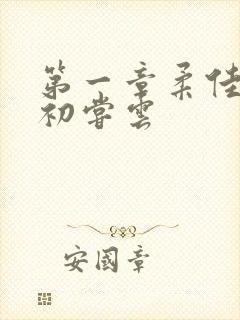 第一章柔佳
初尝云
安國章